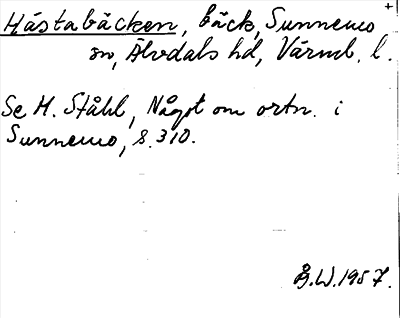 Hästabäcken, bäck, Sunnemo
sn, Älvdals hd, Värml. l.
Se H. Ståhl, Något om ortn. i
Sunnemo, s. 310.
Å.W. 1957.